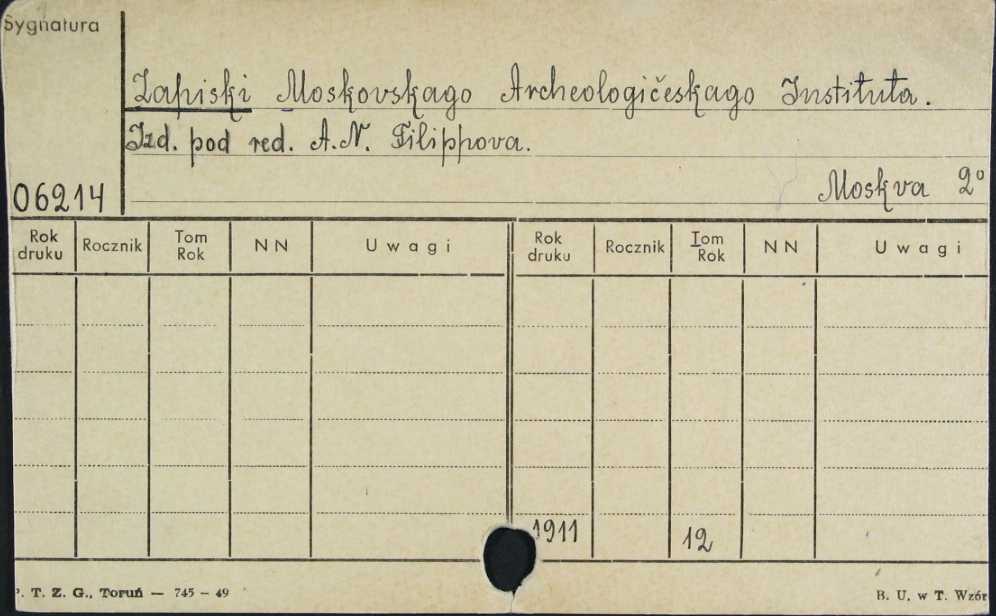 Sygnatura
Zapiski Moskovskago Archeologičeskago Instituta.
Izd. pod red. A.N. Filippova.
06214
Moskva 2°
Rok druku Rocznik Tom Rok NN Uwagi Rok druku Rocznik Tom Rok NN Uwagi
1911 12
P. T. Z. G., Toruń — 745 – 49
B. U. w T. Wzór